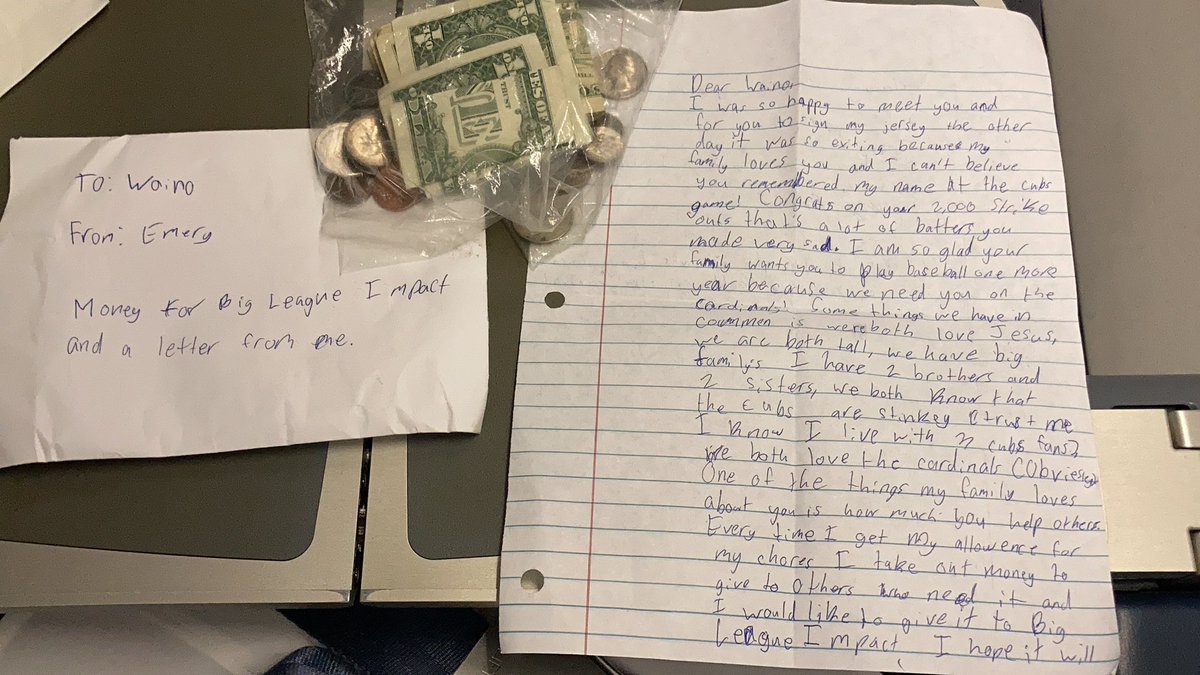 To: Waino
From: Emery
Money for Big League Impact
and a letter from me.
Dear Waino
I was so happy to meet you and
for you to sign my jersey the other
day it was so exiting because my
family loves you and I can't believe
you remembered my name at the cubs
game! Congrats on your 2,000 Strike
outs that's a lot of batters you
made very sad. I am so glad your
family wants you to play baseball one more
year because we need you on the
cardinals! Some things we have in
coummen is wereboth love Jesus,
we are both tall, we have big
family's I have 2 brothers and
2 sisters, we both know that
the cubs are stinkey (trust me
I know I live with 2 cubs fans)
we both love the cardinals
One of the things my family loves
about you is how much you help others.
Every time I get my allowence for
my chores I take out money to
give to others who need it and
I would like to give it to Big
League Impact I hope it will
ONE